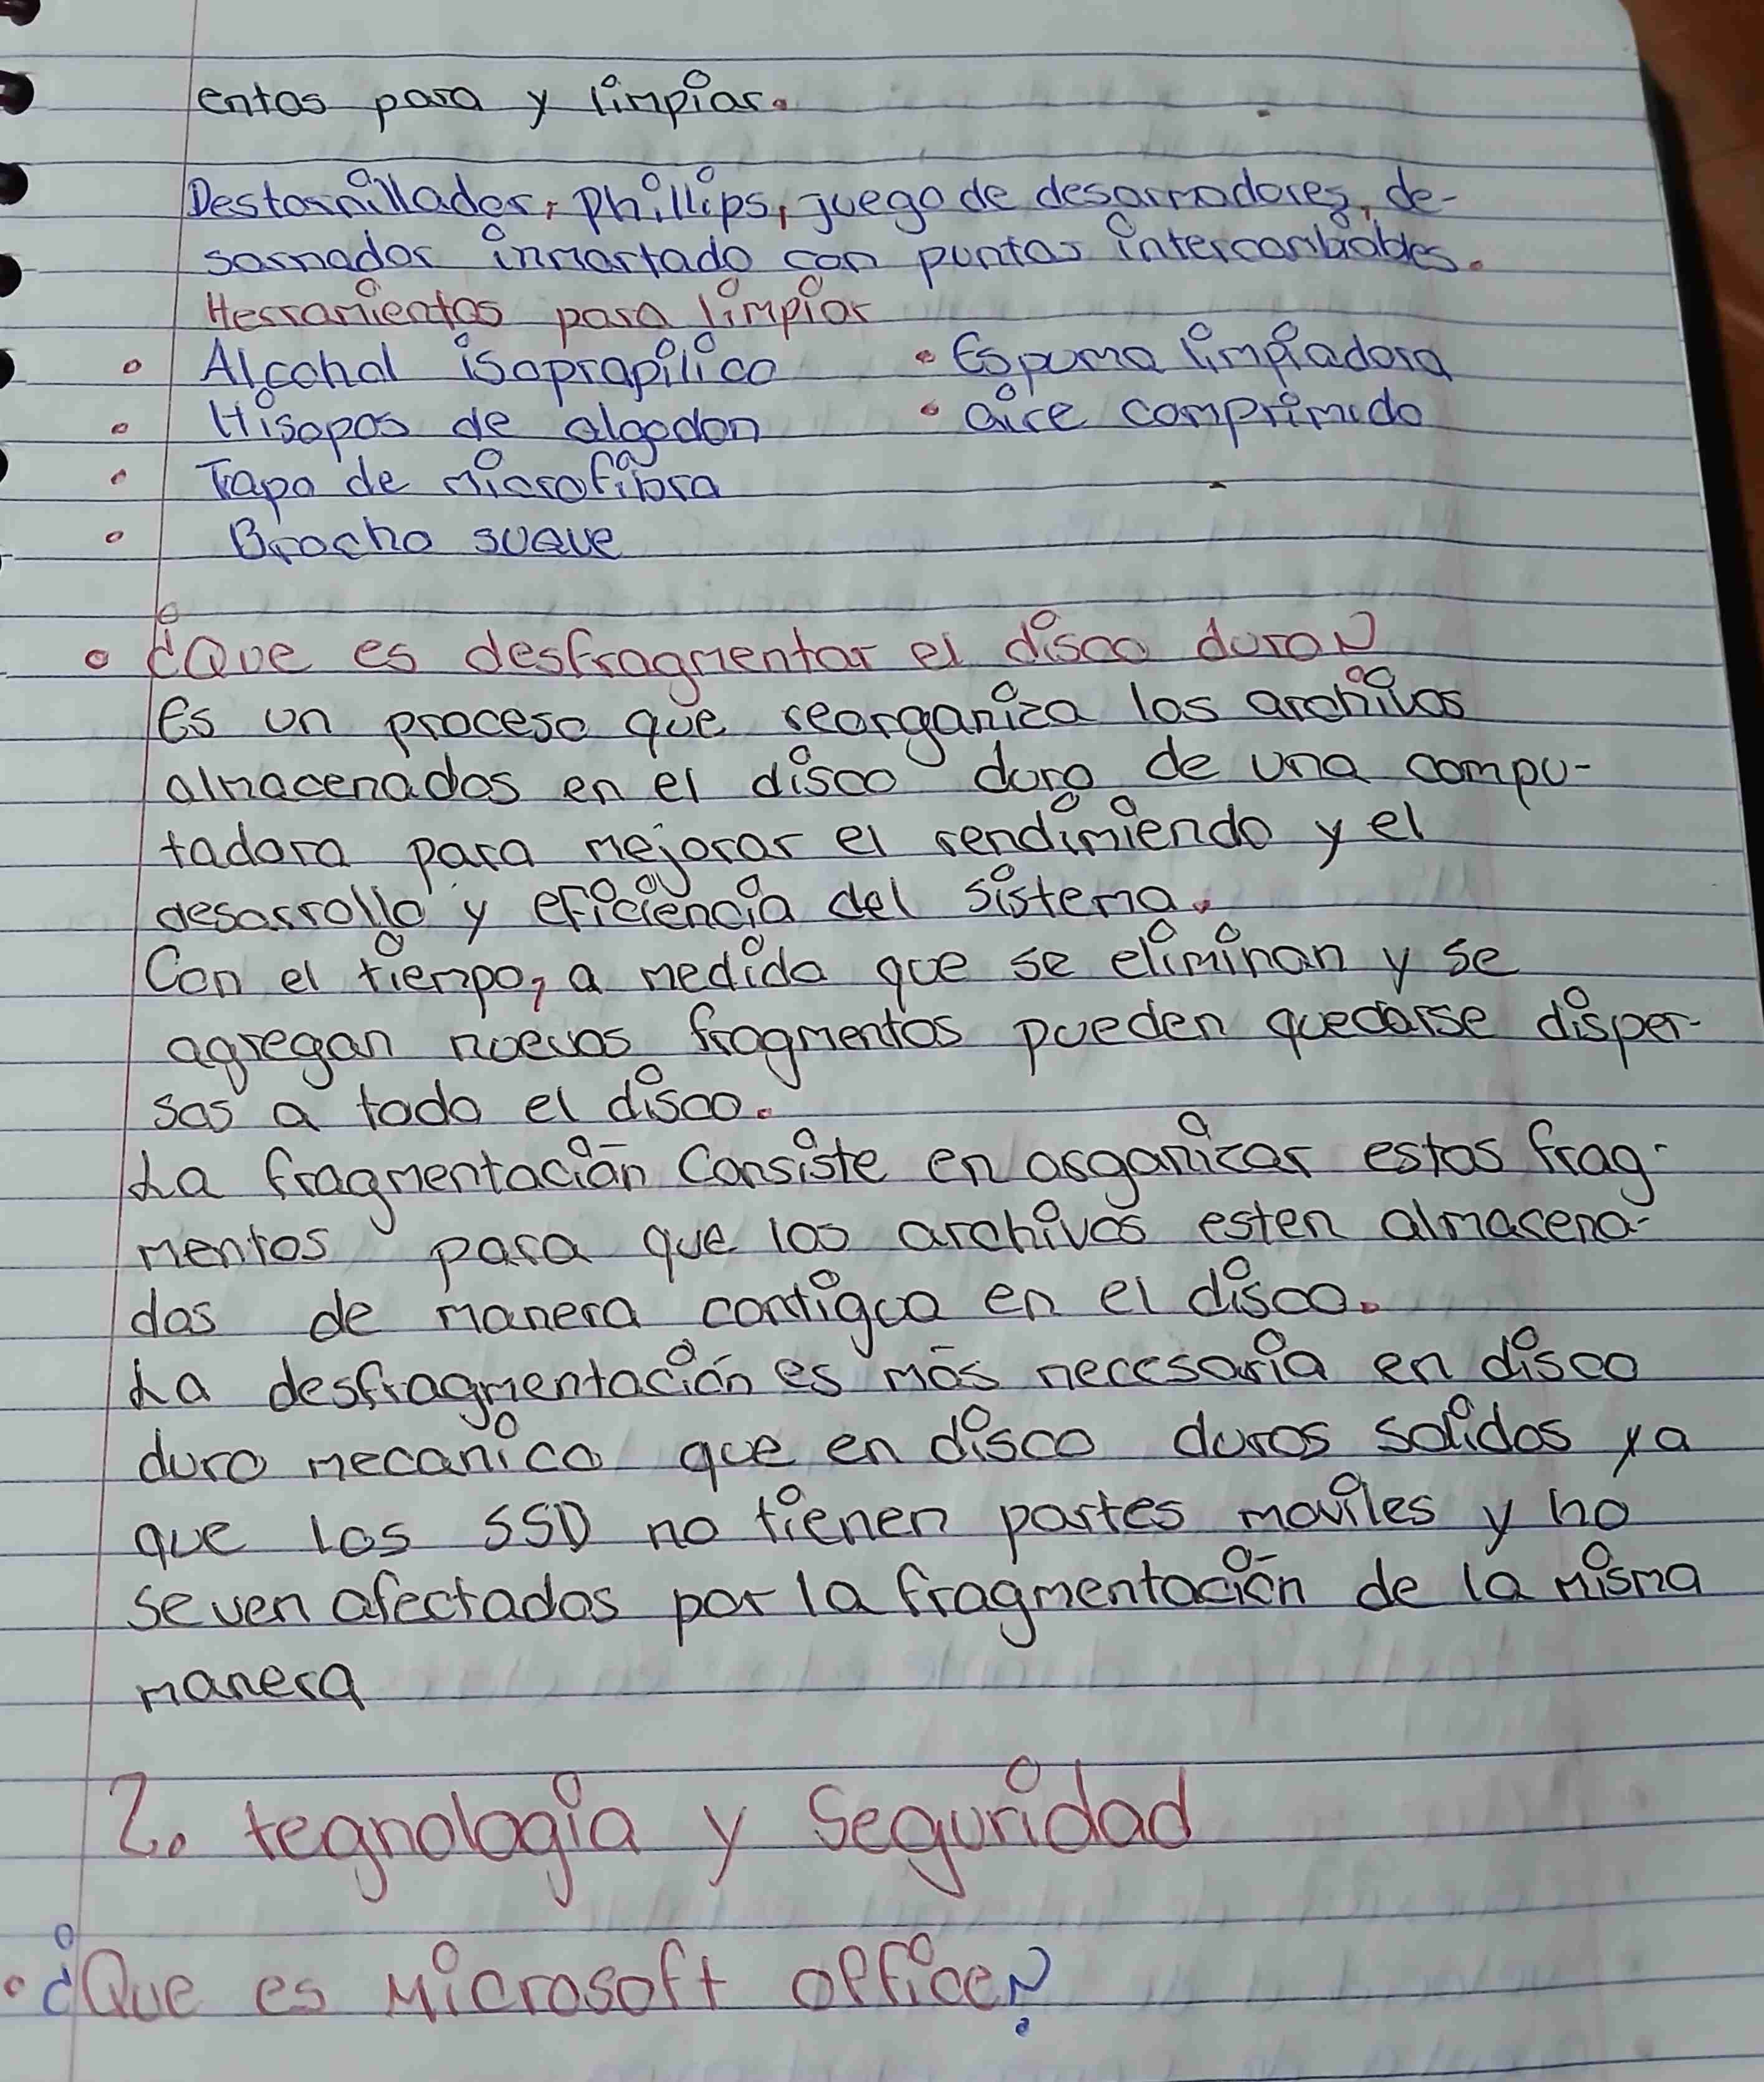 entas para y limpiar.
Destornillador, Phillips, juego de desarmadores, de-
sarmador inmartado con puntas intercambiables.
Herramientas para limpiar
• Alcohol isopropilico • Espuma limpiadora
• Hisopos de algodon • aire comprimido
• Trapo de microfibra
• Brocha suave
• ¿Que es desfragmentar el disco duro?
Es un proceso que reorganiza los archivos
almacenados en el disco duro de una compu-
tadora para mejorar el rendimiendo y el
desarrollo y eficiencia del sistema.
Con el tiempo, a medida que se eliminan y se
agregan nuevos fragmentos pueden quedarse disper-
sos a todo el disco.
La fragmentación Consiste en organizar estos frag-
mentos para que los archivos esten almacena-
dos de manera contigua en el disco.
La desfragmentación es más necesaria en disco
duro mecanico que en disco duros solidos ya
que los SSD no tienen partes moviles y no
se ven afectados por la fragmentación de la misma
manera
2. tegnologia y Seguridad
• ¿Que es Microsoft office?